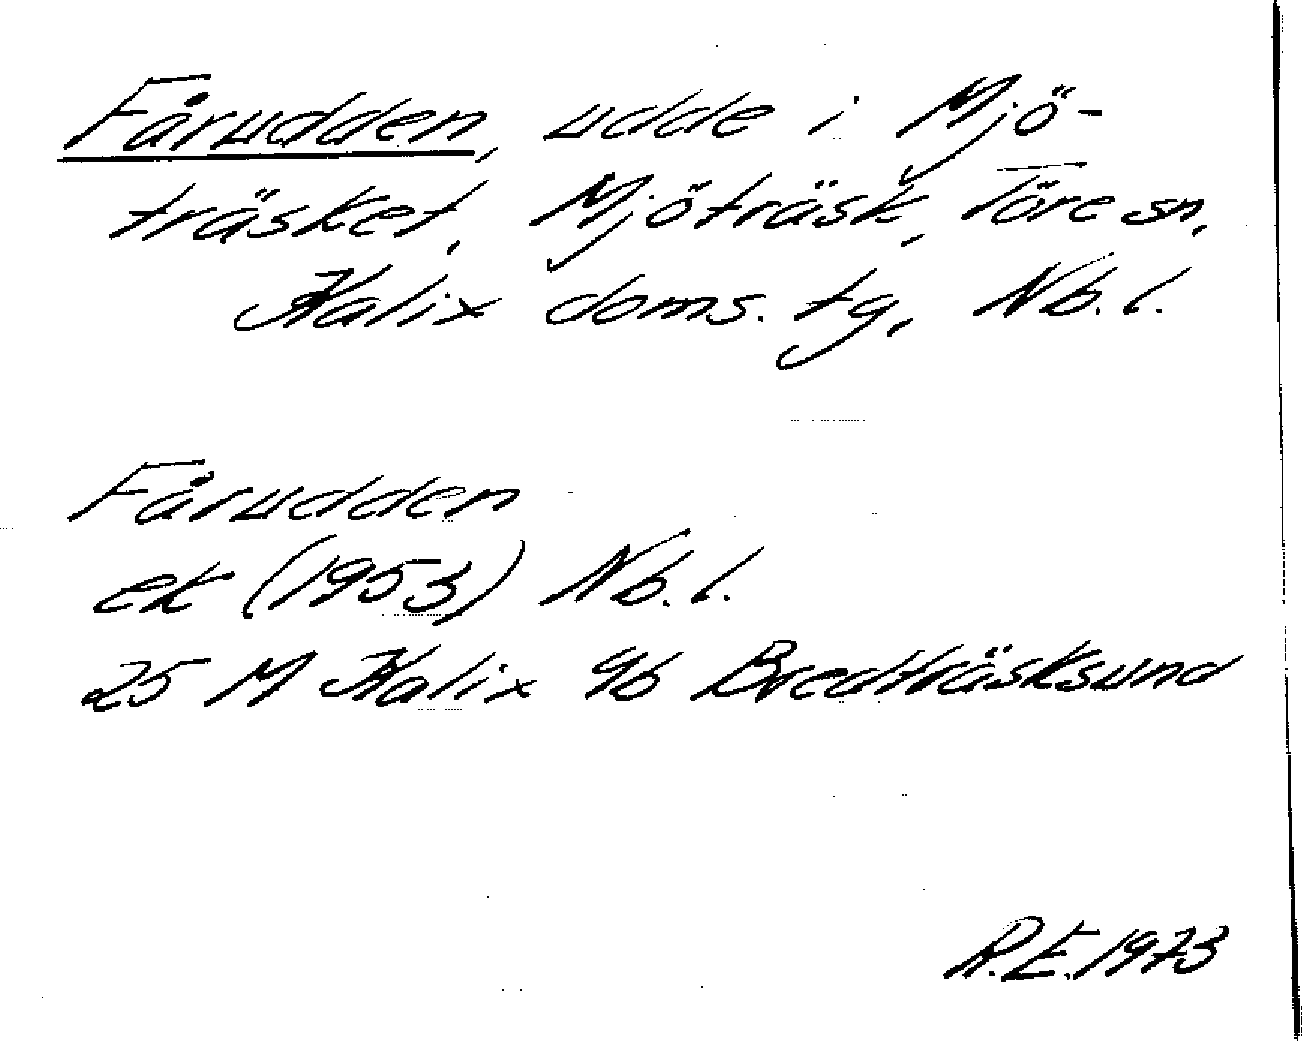 Fårudden, udde i Mjö-
träsket, Mjöträsk, Töre sn,
Kalix doms. tg, Nb. l.
Fårudden
ek (1953) Nb. l.
25 M Kalix 9b Bredträsksund
R.E. 1973